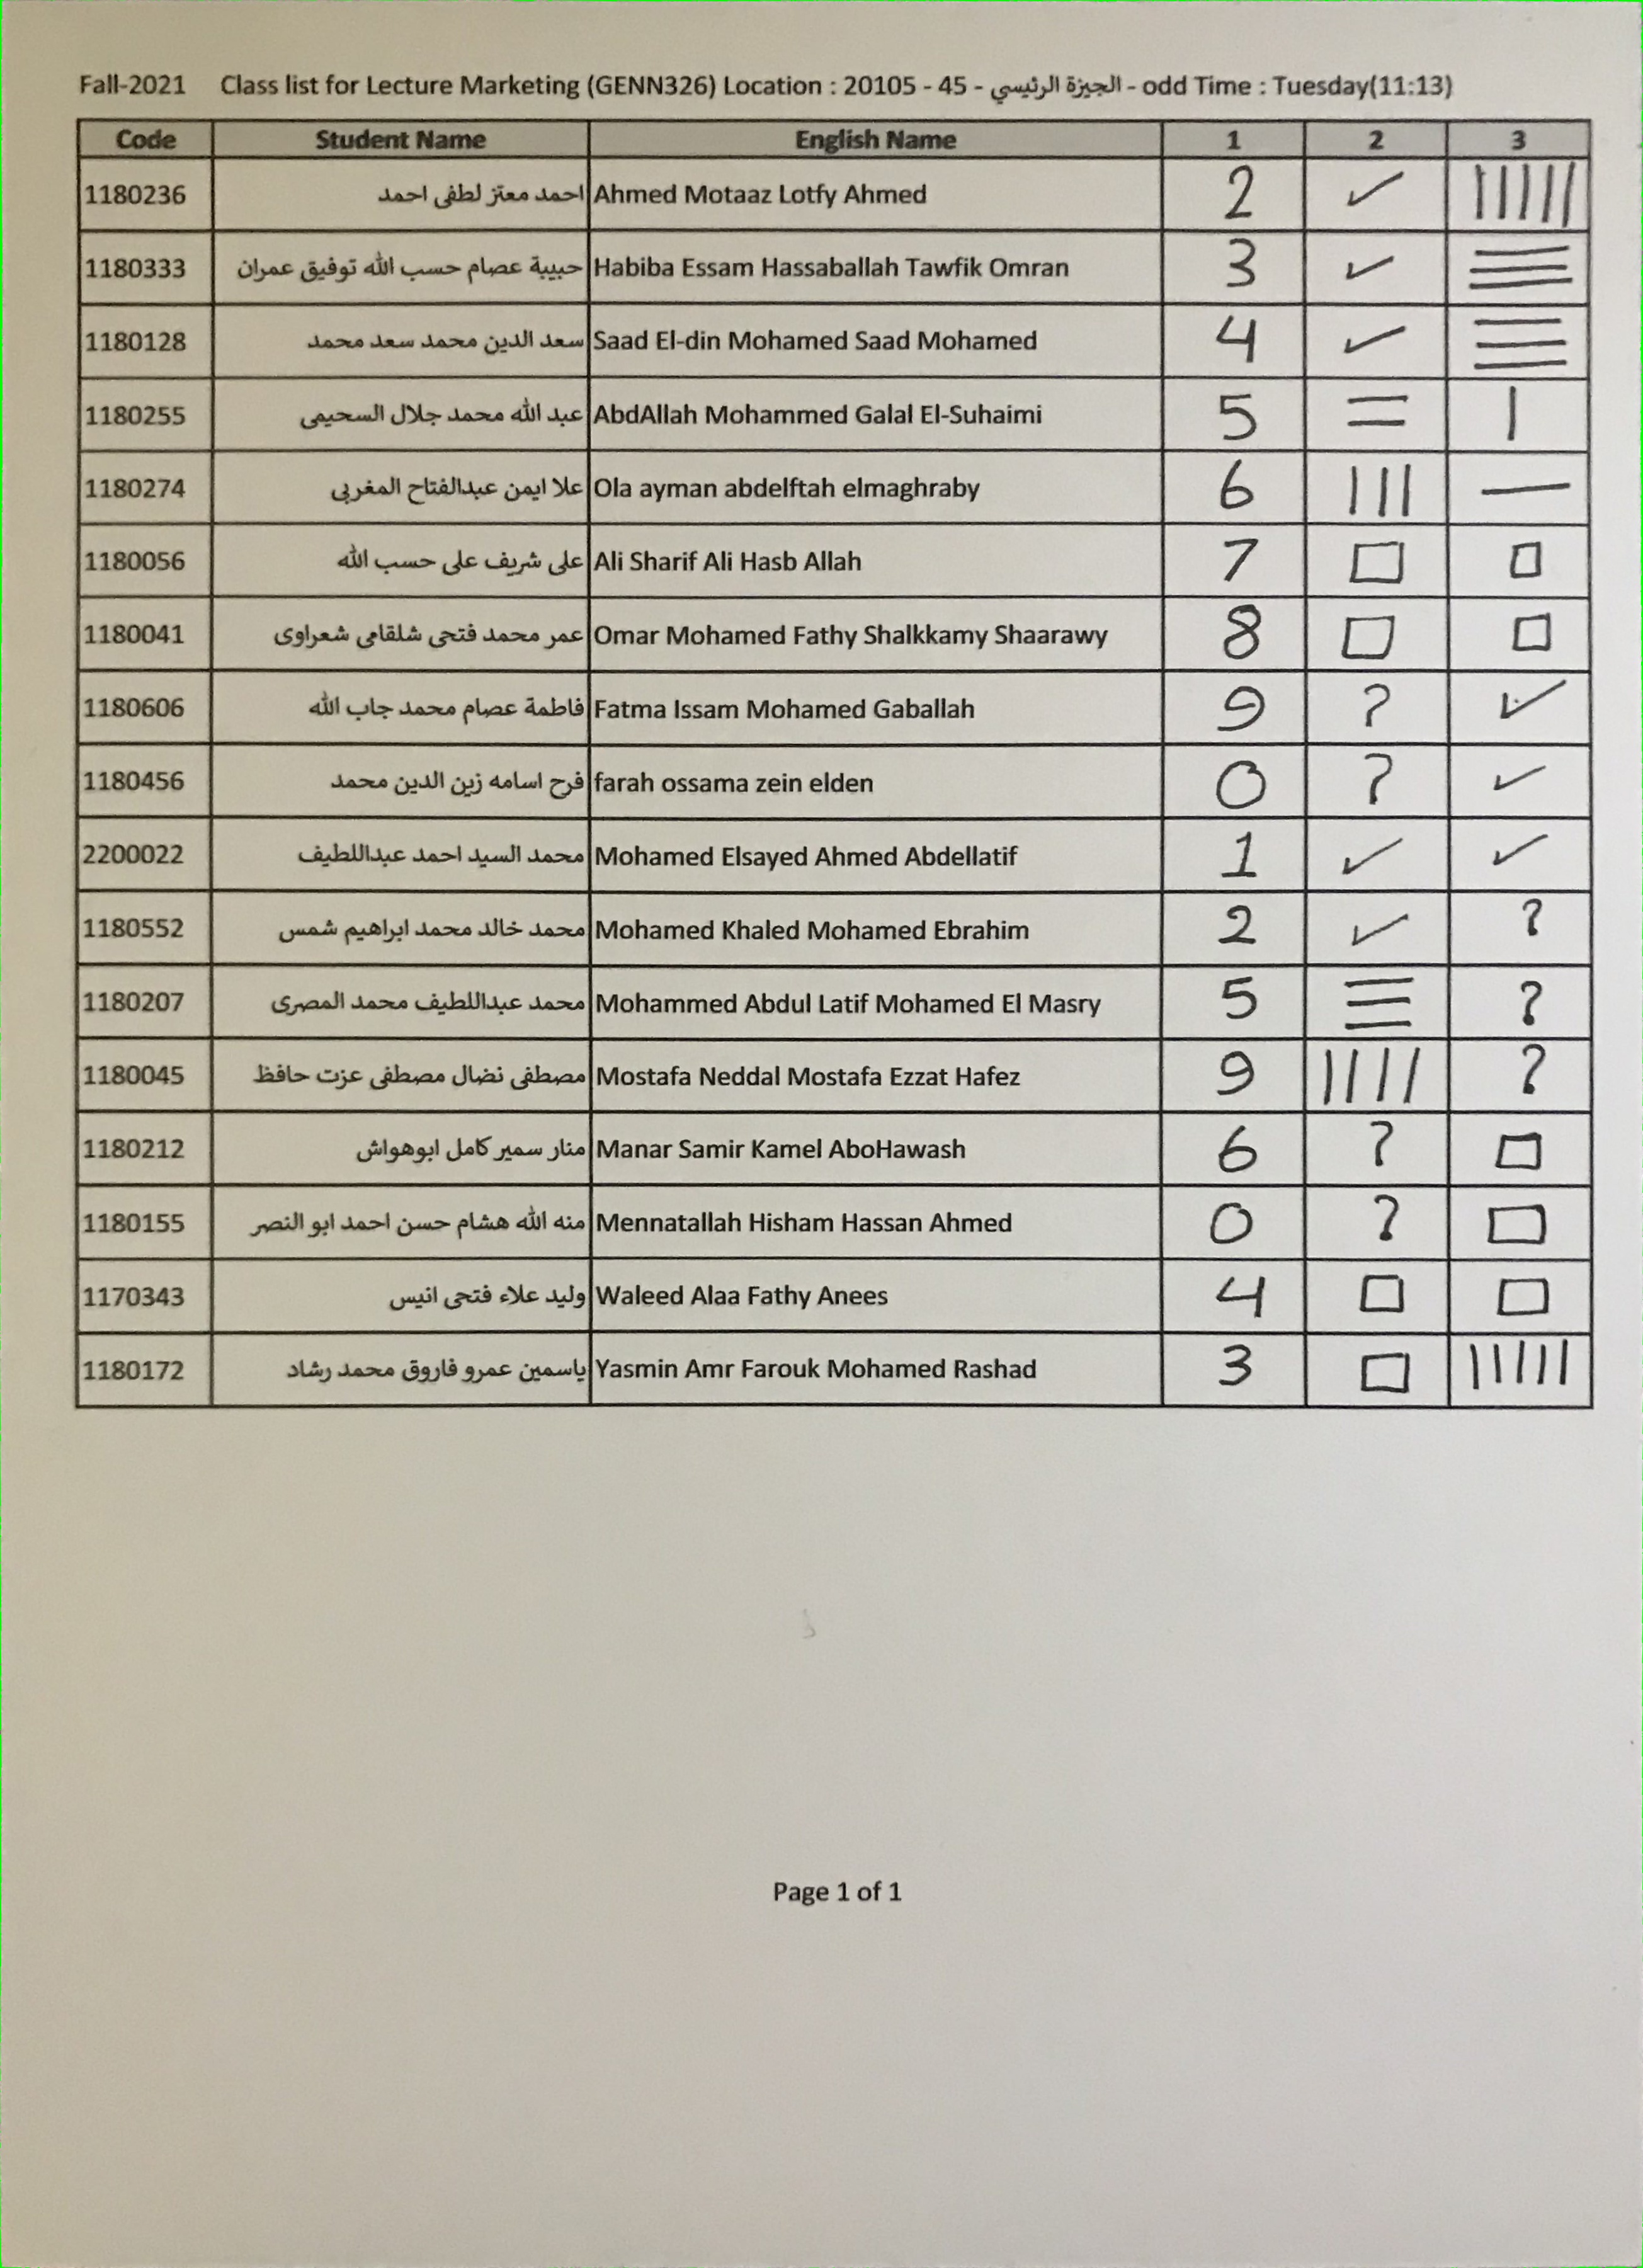 Fall-2021 Class list for Lecture Marketing (GENN326) Location : 20105 - 45 - الجيزة الرئيسي - odd Time : Tuesday(11:13)
Code Student Name English Name 1 2 3
1180236 احمد معتز لطفى احمد Ahmed Motaaz Lotfy Ahmed 2 ✓ |||||
1180333 حبيبة عصام حسب الله توفيق عمران Habiba Essam Hassaballah Tawfik Omran 3 ✓ ☰
1180128 سعد الدين محمد سعد محمد Saad El-din Mohamed Saad Mohamed 4 ✓ ☰
1180255 عبد الله محمد جلال السحيمى AbdAllah Mohammed Galal El-Suhaimi 5 = |
1180274 علا ايمن عبدالفتاح المغربى Ola ayman abdelftah elmaghraby 6 ||| —
1180056 على شريف على حسب الله Ali Sharif Ali Hasb Allah 7 □ □
1180041 عمر محمد فتحى شلقامى شعراوى Omar Mohamed Fathy Shalkkamy Shaarawy 8 □ □
1180606 فاطمة عصام محمد جاب الله Fatma Issam Mohamed Gaballah 9 ? ✓
1180456 فرح اسامه زين الدين محمد farah ossama zein elden 0 ? ✓
2200022 محمد السيد احمد عبداللطيف Mohamed Elsayed Ahmed Abdellatif 1 ✓ ✓
1180552 محمد خالد محمد ابراهيم شمس Mohamed Khaled Mohamed Ebrahim 2 ✓ ?
1180207 محمد عبداللطيف محمد المصرى Mohammed Abdul Latif Mohamed El Masry 5 ☰ ?
1180045 مصطفى نضال مصطفى عزت حافظ Mostafa Neddal Mostafa Ezzat Hafez 9 |||| ?
1180212 منار سمير كامل ابوهواش Manar Samir Kamel AboHawash 6 ? □
1180155 منه الله هشام حسن احمد ابو النصر Mennatallah Hisham Hassan Ahmed 0 ? □
1170343 وليد علاء فتحى انيس Waleed Alaa Fathy Anees 4 □ □
1180172 ياسمين عمرو فاروق محمد رشاد Yasmin Amr Farouk Mohamed Rashad 3 □ |||||
Page 1 of 1